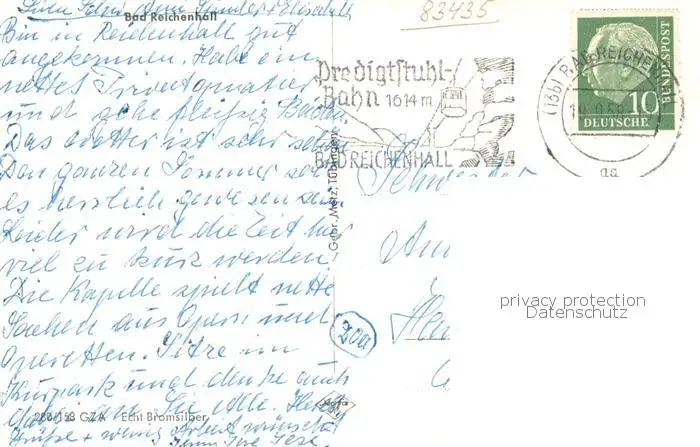 83435
Bad Reichenhall
Bin in Reichenhall gut
angekommen. Habe ein
nettes Privatquartier
und gehe fleißig Baden.
Das Wetter ist sehr schön
Den ganzen Sommer soll
es herrlich gewesen sein.
Leider wird die Zeit hier
viel zu kurz werden.
Die Kapelle spielt nette
Sachen aus Opern und
Operetten. Sitze im
Kurpark und denke auch
an Sie Alle. Herzl.
Grüße + wenig Arbeit wünscht
280/158 GZA Echt Bromsilber
Gebr. Metz, Tübingen
Predigtstuhl-
Bahn 1614 m
BAD REICHENHALL
(13b) BAD REICHENH
aa
10
DEUTSCHE
BUNDESPOST
Schwester
20a
privacy protection
Datenschutz